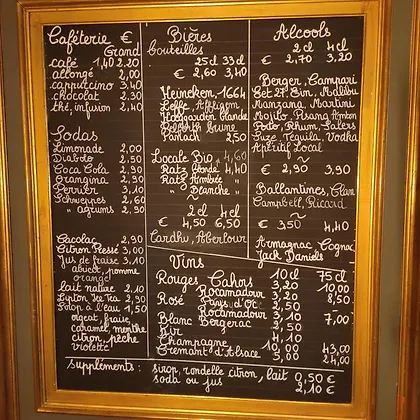 Caféterie €
Grand
café 1,40 2,20
allongé 2,00
cappuccino 3,40
chocolat 2,30
thé, infusion 2,40
Sodas
Limonade 2,00
Diabolo 2,50
Coca Cola 2,90
Orangina 2,90
Perrier 3,10
Schweppes 2,60
" agrums 2,90
Cacolac 2,90
Citron Pressé 3,00
Jus de fraise 3,10
abricot, pomme
orange
lait nature 2,10
Lipton Ice Tea 2,90
Sirop à l'eau 1,50
orgeat, fraise,
caramel, menthe
citron, pêche
violette
Bières
Bouteilles
25cl 33cl
€ 2,60 3,40
Heineken, 1664
Leffe, Affligem
Hoegaarden blanche
Pelforth brune
Panach 2,50
Locale Bio 4,60
Ratz blonde 4,40
Ratz Ambrée "
" Blanche "
2cl 4cl
€ 4,50 6,50
Cardhu, Aberlour
Alcools
2cl 4cl
€ 2,70 3,20
Berger, Campari
Get 27, Gin, Malibu
Manzana, Martini
Mojito, Pisang Ambon
Porto, Rhum, Salers
Suze, Tequila, Vodka
Apéritif Local
€ 2,90 3,90
Ballantines, Clan
Campbell, Ricard
€ 3,50 4,40
Armagnac, Cognac
Jack Daniels
Vins
10cl 75cl
Rouges Cahors 3,10 10,00
Rocamadour 3,20
Rosé Pays d'Oc 2,50 8,50
Rocamadour 3,10
Blanc Bergerac 3,10 7,00
Kir 2,50
Champagne 4,10
10,00 43,00
Cremant d'Alsace 5,00 24,00
suppléments : sirop, rondelle citron, lait 0,50 €
soda ou jus 2,10 €